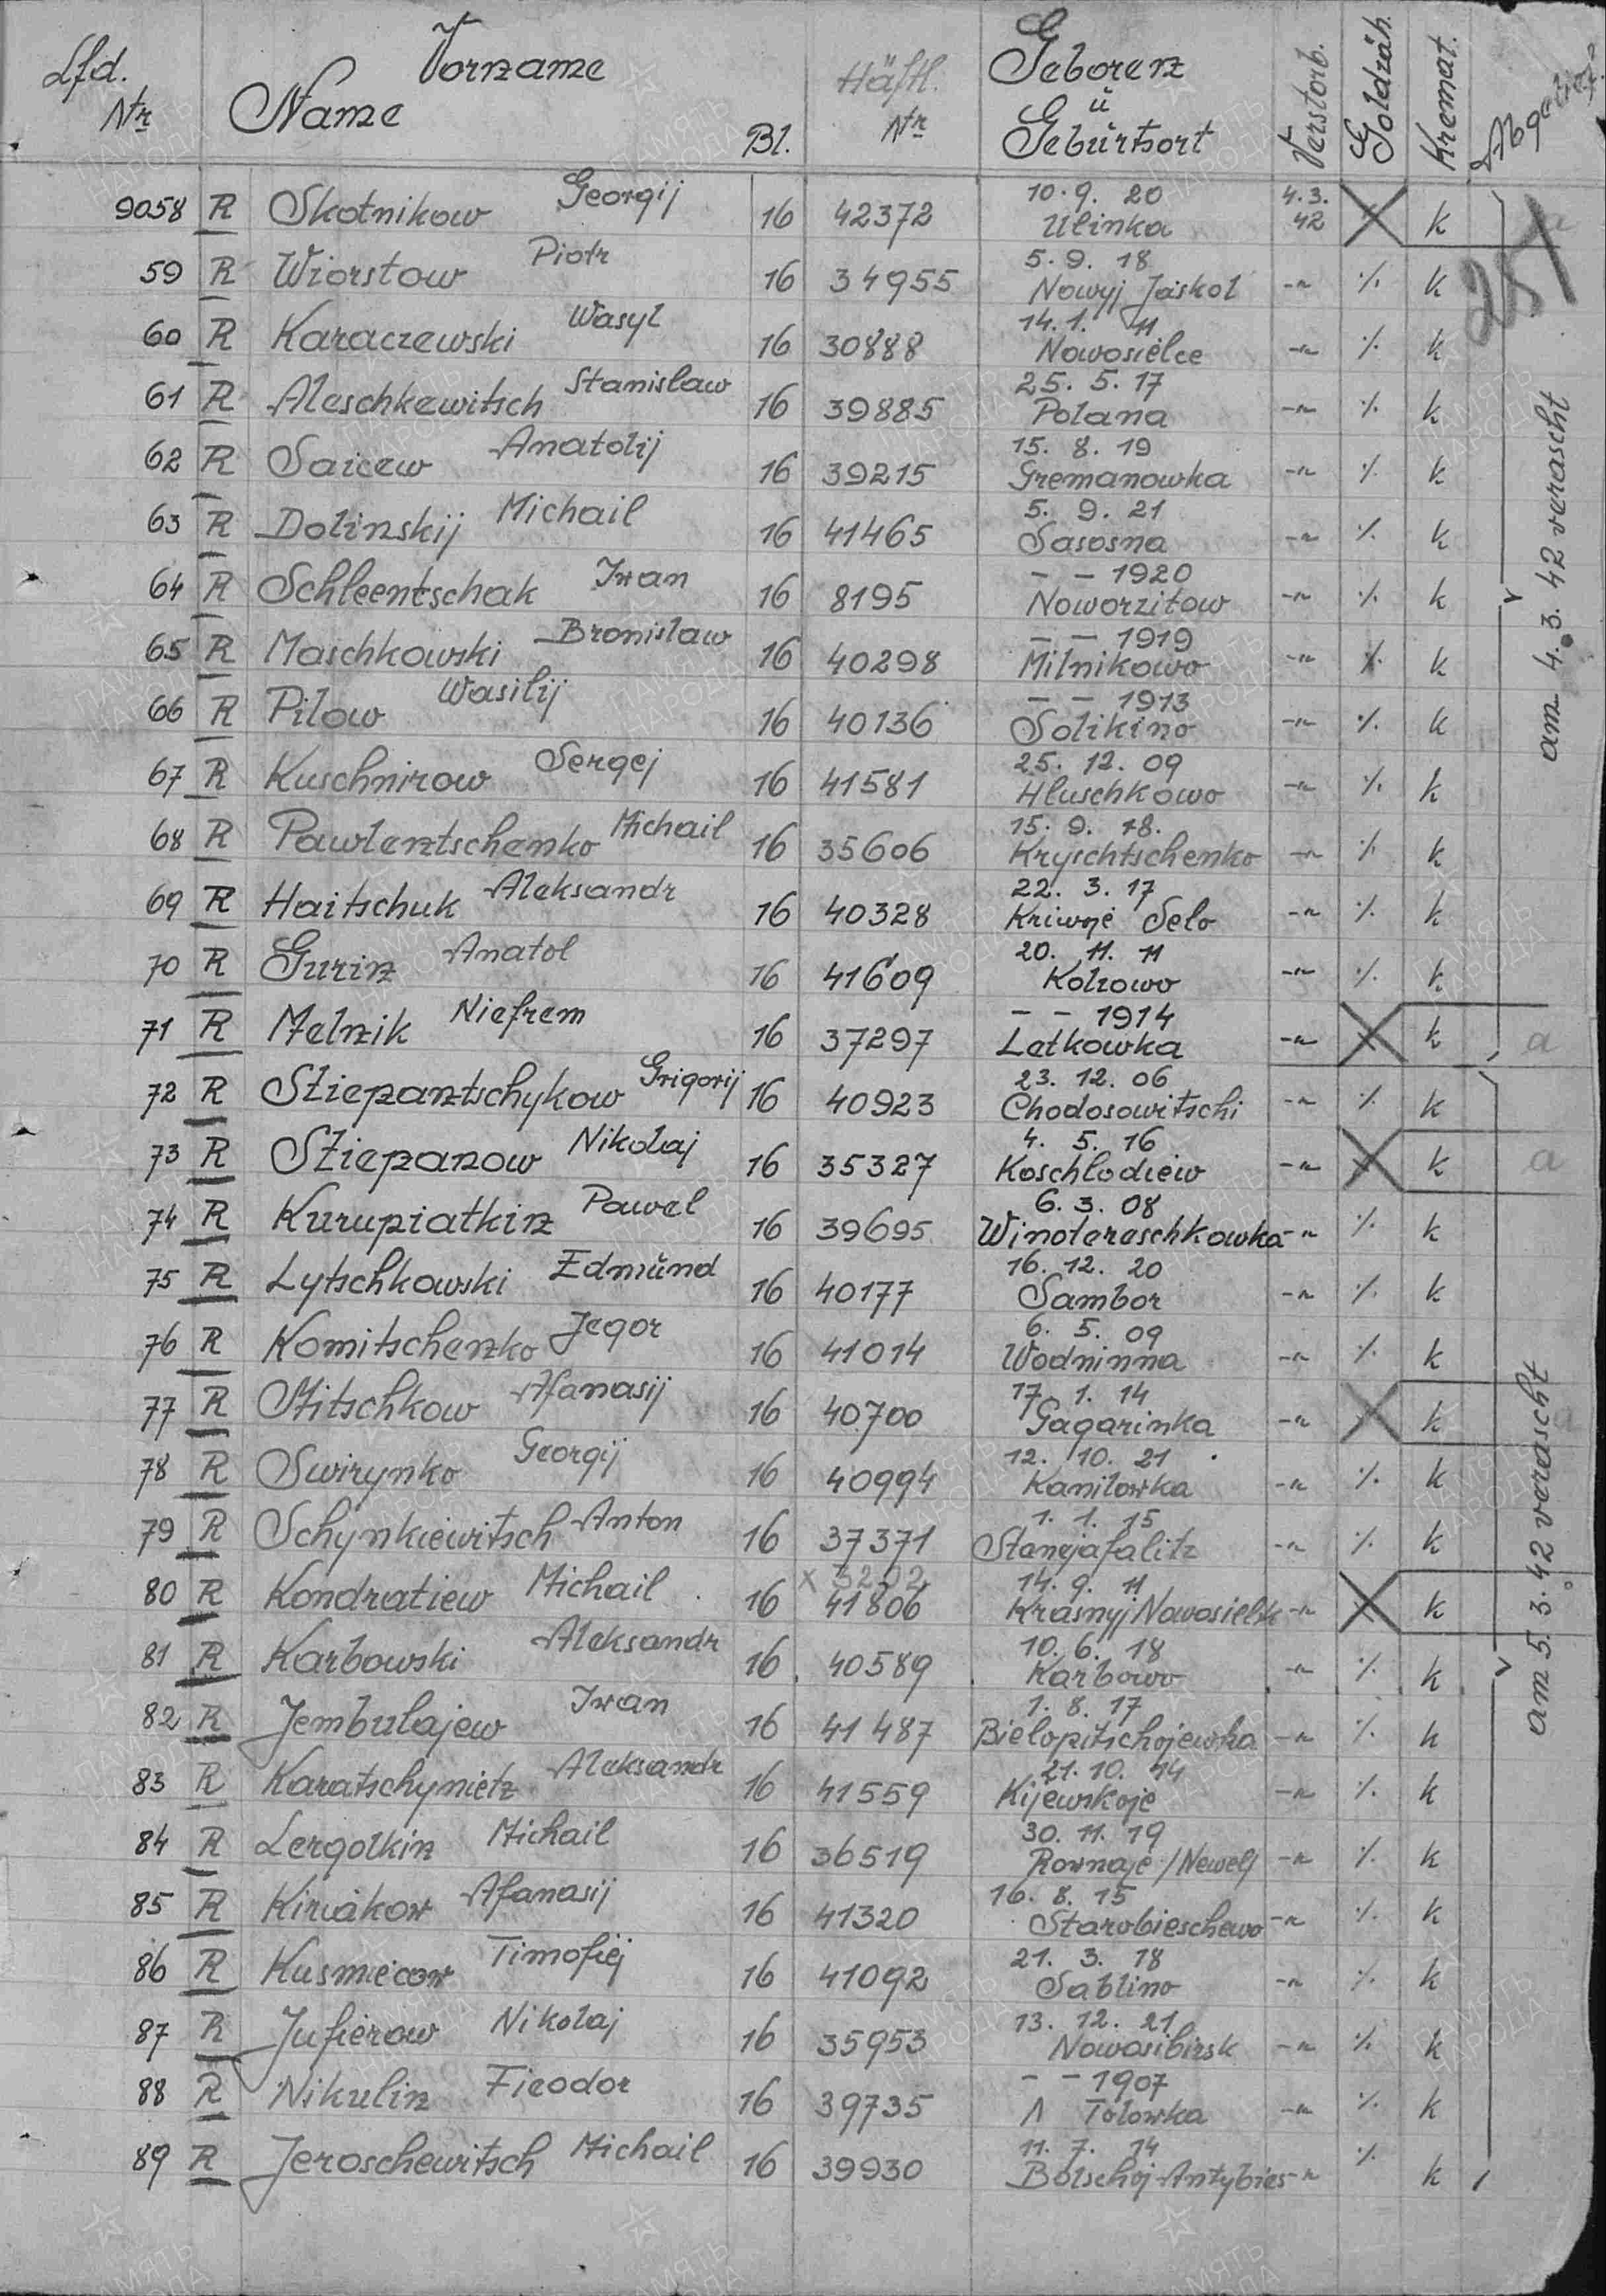 Lfd. Nr Name Vorname Bl. Häftl. Nr Geboren ü Gebürtsort Verstorb. Goldzäh. Kremat.
9058 R Skotnikow Georgij 16 42372 10.9.20 Ulinka 4.3.42 X k
59 R Wiorstow Piotr 16 34955 5.9.18 Nowyj Jaskol -"- ⁒ k
60 R Karaczewski Wasyl 16 30888 14.1.11 Nowosielce -"- ⁒ k
61 R Aleschkewitsch Stanislaw 16 39885 25.5.17 Polana -"- ⁒ k
62 R Saicew Anatolij 16 39215 15.8.19 Gremanowka -"- ⁒ k
63 R Dolinskij Michail 16 41465 5.9.21 Sasosna -"- ⁒ k
64 R Schleentschak Iwan 16 8195 - - 1920 Noworzitow -"- ⁒ k
65 R Maschkowski Bronislaw 16 40298 - - 1919 Milnikowo -"- ⁒ k
66 R Pilow Wasilij 16 40136 - - 1913 Solikino -"- ⁒ k
67 R Kuschnirow Sergej 16 41581 25.12.09 Hluschkowo -"- ⁒ k
68 R Pawlentschenko Michail 16 35606 15.9.18. Kryschtschenko -"- ⁒ k
69 R Haitschuk Aleksandr 16 40328 22.3.17 Kriwoje Selo -"- ⁒ k
70 R Gurin Anatol 16 41609 20.11.11 Kolzowo -"- ⁒ k
71 R Melnik Niefrem 16 37297 - - 1914 Letkowka -"- X k a
72 R Stiepantschykow Grigorij 16 40923 23.12.06 Chodosowitschi -"- ⁒ k
73 R Stiepanow Nikolaj 16 35327 4.5.16 Koschlodiew -"- X k a
74 R Kurupiatkin Pawel 16 39695 6.3.08 Winotereschkowka -"- ⁒ k
75 R Lytschkowski Edmünd 16 40177 16.12.20 Sambor -"- ⁒ k
76 R Komitschenko Jegor 16 41014 6.5.09 Wodninna -"- ⁒ k
77 R Mitschkow Afanasij 16 40700 17.1.14 Gagarinka -"- X k a
78 R Swirynko Georgij 16 40994 12.10.21 Kanilowka -"- ⁒ k
79 R Schynkiewitsch Anton 16 37371 1.1.15 Stancjafalitz -"- ⁒ k
80 R Kondratiew Michail 16 41806 14.9.11 Krasnyj Nowosielk -"- X k
81 R Karbowski Aleksandr 16 40589 10.6.18 Karbowo -"- ⁒ k
82 R Jembulajew Iwan 16 41487 1.8.17 Bielopitschojewka -"- ⁒ k
83 R Karatschynietz Aleksandr 16 41559 21.10.14 Kijewskoje -"- ⁒ k
84 R Lergotkin Michail 16 36519 30.11.19 Rownaje /Newelj -"- ⁒ k
85 R Kiriakow Afanasij 16 41320 16.8.15 Starobieschewo -"- ⁒ k
86 R Kusmiecow Timofiej 16 41092 21.3.18 Sablino -"- ⁒ k
87 R Jufierow Nikolaj 16 35953 13.12.21 Nowosibirsk -"- ⁒ k
88 R Nikulin Fieodor 16 39735 - - 1907 Tolowka -"- ⁒ k
89 R Jeroschewitsch Michail 16 39930 11.7.14 Bolschoj-Antybies -"- ⁒ k
am 4.3.42 verascht
am 5.3.42 verascht